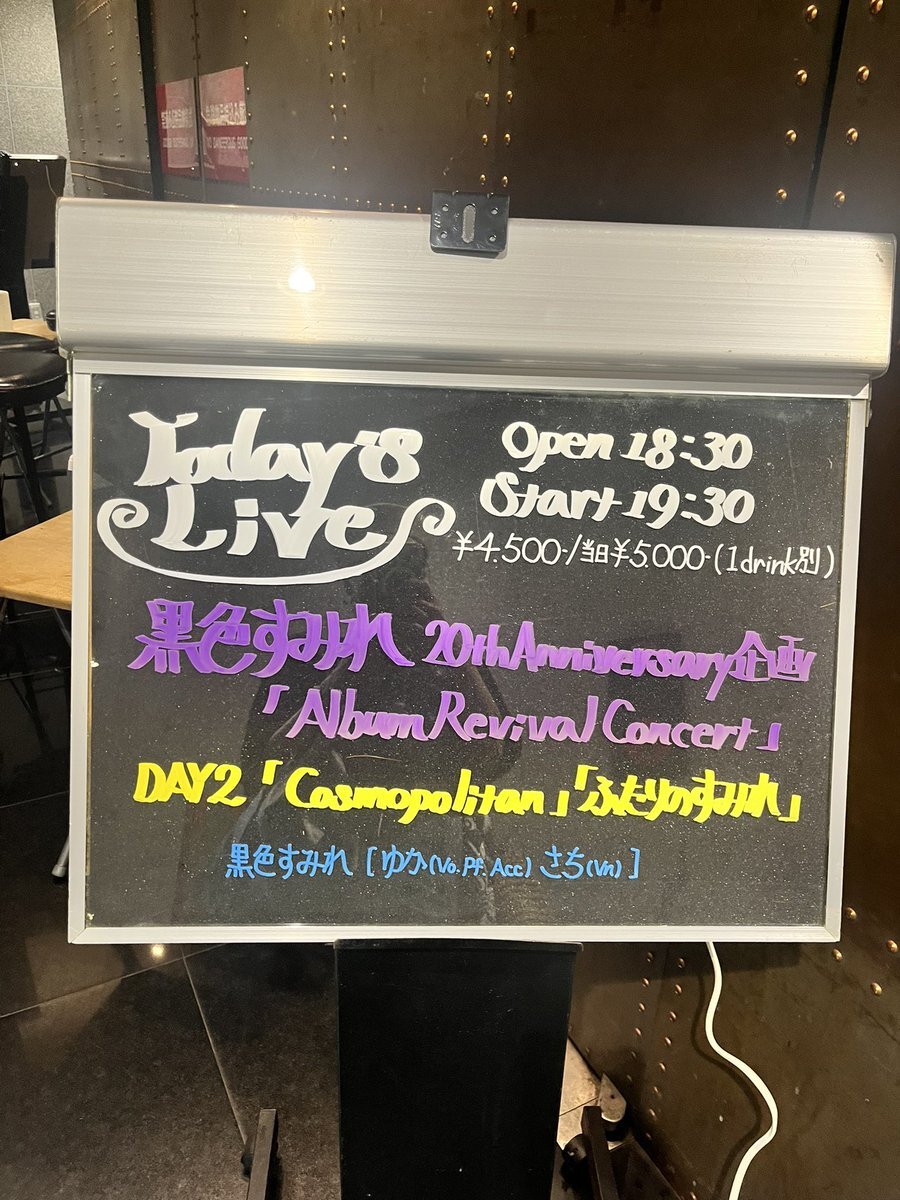 Today's
Live
Open 18:30
Start 19:30
¥4.500-/当日¥5.000-(1drink別)
黒色すみれ 20th Anniversary企画
「Album Revival Concert」
DAY2「Cosmopolitan」「ふたりのすみれ」
黒色すみれ [ゆか(Vo.Pf.Acc) さち(Vn)]